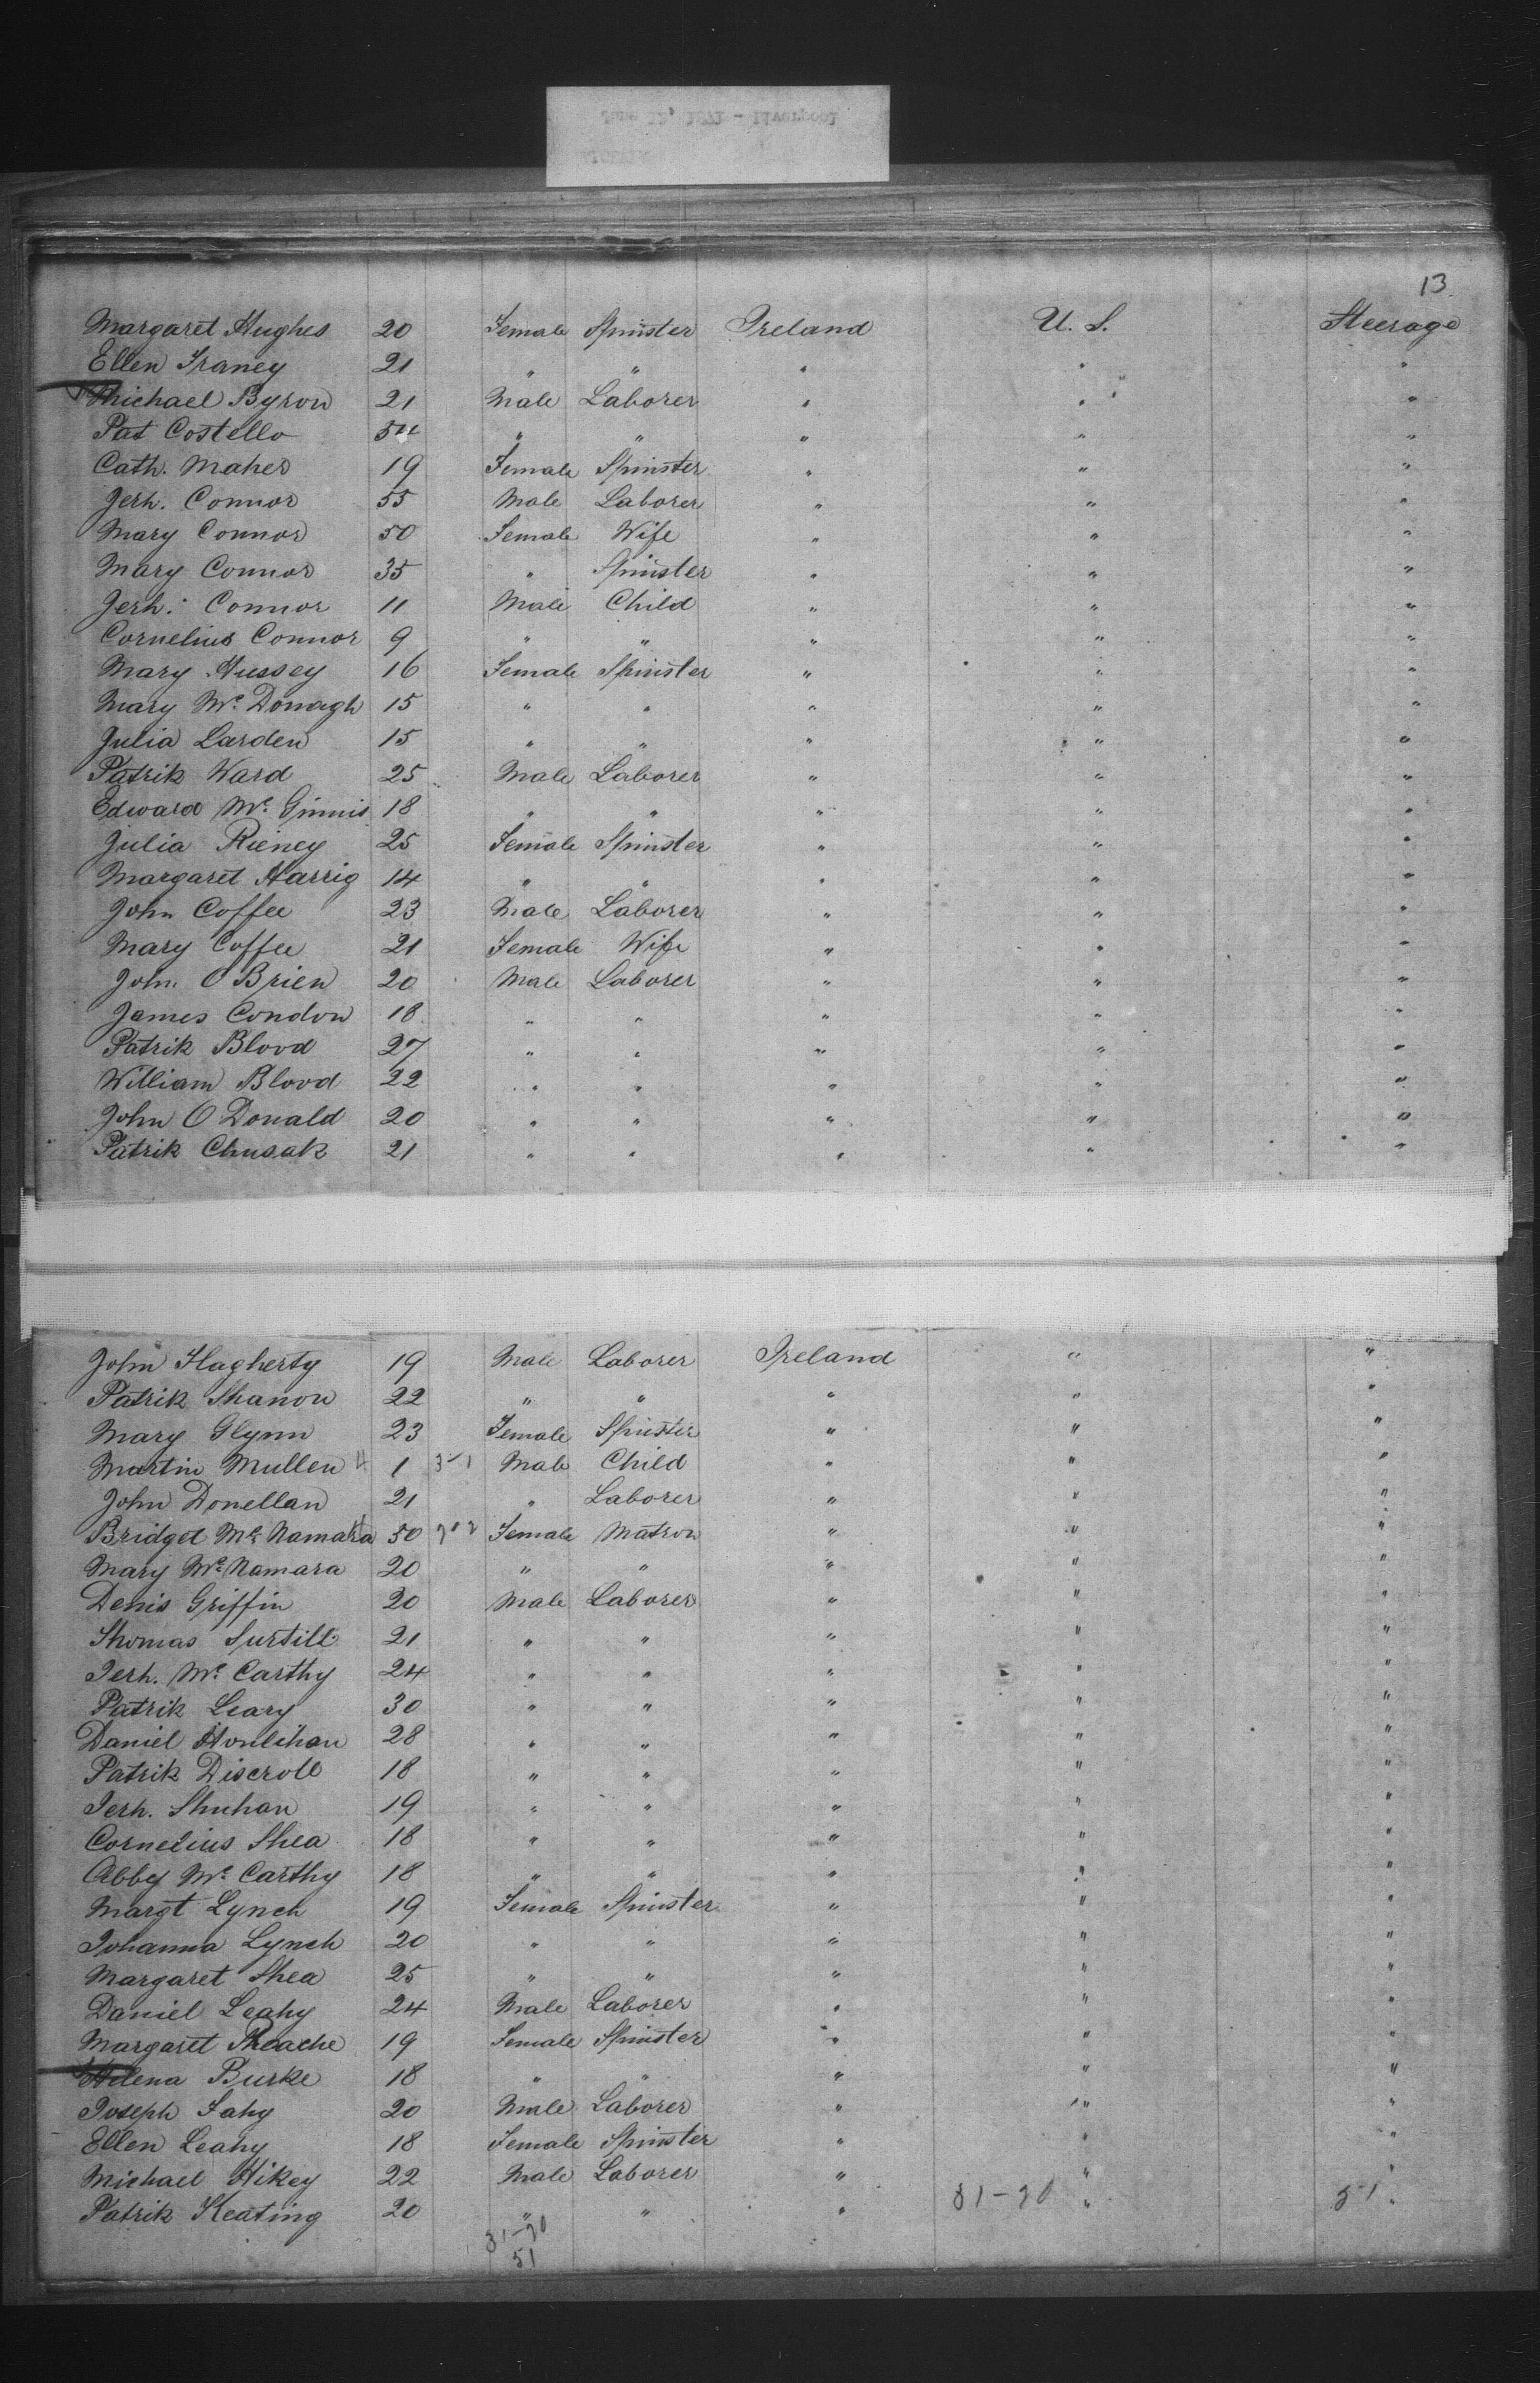 13
Margaret Hughes 20 Female Spinster Ireland U. S. Steerage
Ellen Franey 21 " " " " "
Michael Byron 21 Male Laborer " " "
Pat Costello 54 " " " " "
Cath. Maher 19 Female Spinster " " "
Jerh. Connor 55 Male Laborer " " "
Mary Connor 50 Female Wife " " "
Mary Connor 35 " Spinster " " "
Jerh. Connor 11 Male Child " " "
Cornelius Connor 9 " " " " "
Mary Hussey 16 Female Spinster " " "
Mary Mc Donagh 15 " " " " "
Julia Larden 15 " " " " "
Patrik Ward 25 Male Laborer " " "
Edward Mc Ginnis 18 " " " " "
Julia Rieney 25 Female Spinster " " "
Margaret Harrig 14 " " " " "
John Coffee 23 Male Laborer " " "
Mary Coffee 21 Female Wife " " "
John O Brien 20 Male Laborer " " "
James Condon 18 " " " " "
Patrik Blood 27 " " " " "
William Blood 22 " " " " "
John O Donald 20 " " " " "
Patrik Chusak 21 " " " " "
John Flagherty 19 Male Laborer Ireland " "
Patrik Shanon 22 " " " " "
Mary Glynn 23 Female Spinster " " "
Martin Mullen 1 Male Child " " "
John Donellan 21 " Laborer " " "
Bridget Mc Namara 50 Female Matron " " "
Mary Mc Namara 20 " " " " "
Denis Griffin 20 Male Laborer " " "
Thomas Surtill 21 " " " " "
Jerh. Mc Carthy 24 " " " " "
Patrik Leary 30 " " " " "
Daniel Honlihan 28 " " " " "
Patrik Discroll 18 " " " " "
Jerh. Shuhan 19 " " " " "
Cornelius Shea 18 " " " " "
Abby Mc Carthy 18 " " " " "
Margt Lynch 19 Female Spinster " " "
Johanna Lynch 20 " " " " "
Margaret Shea 25 " " " " "
Daniel Leahy 24 Male Laborer " " "
Margaret 19 Female Spinster " " "
Helena Burke 18 " " " " "
Joseph Fahy 20 Male Laborer " " "
Ellen Leahy 18 Female Spinster " " "
Michael Hikey 22 Male Laborer " " "
Patrik Keating 20 " " " " "
51